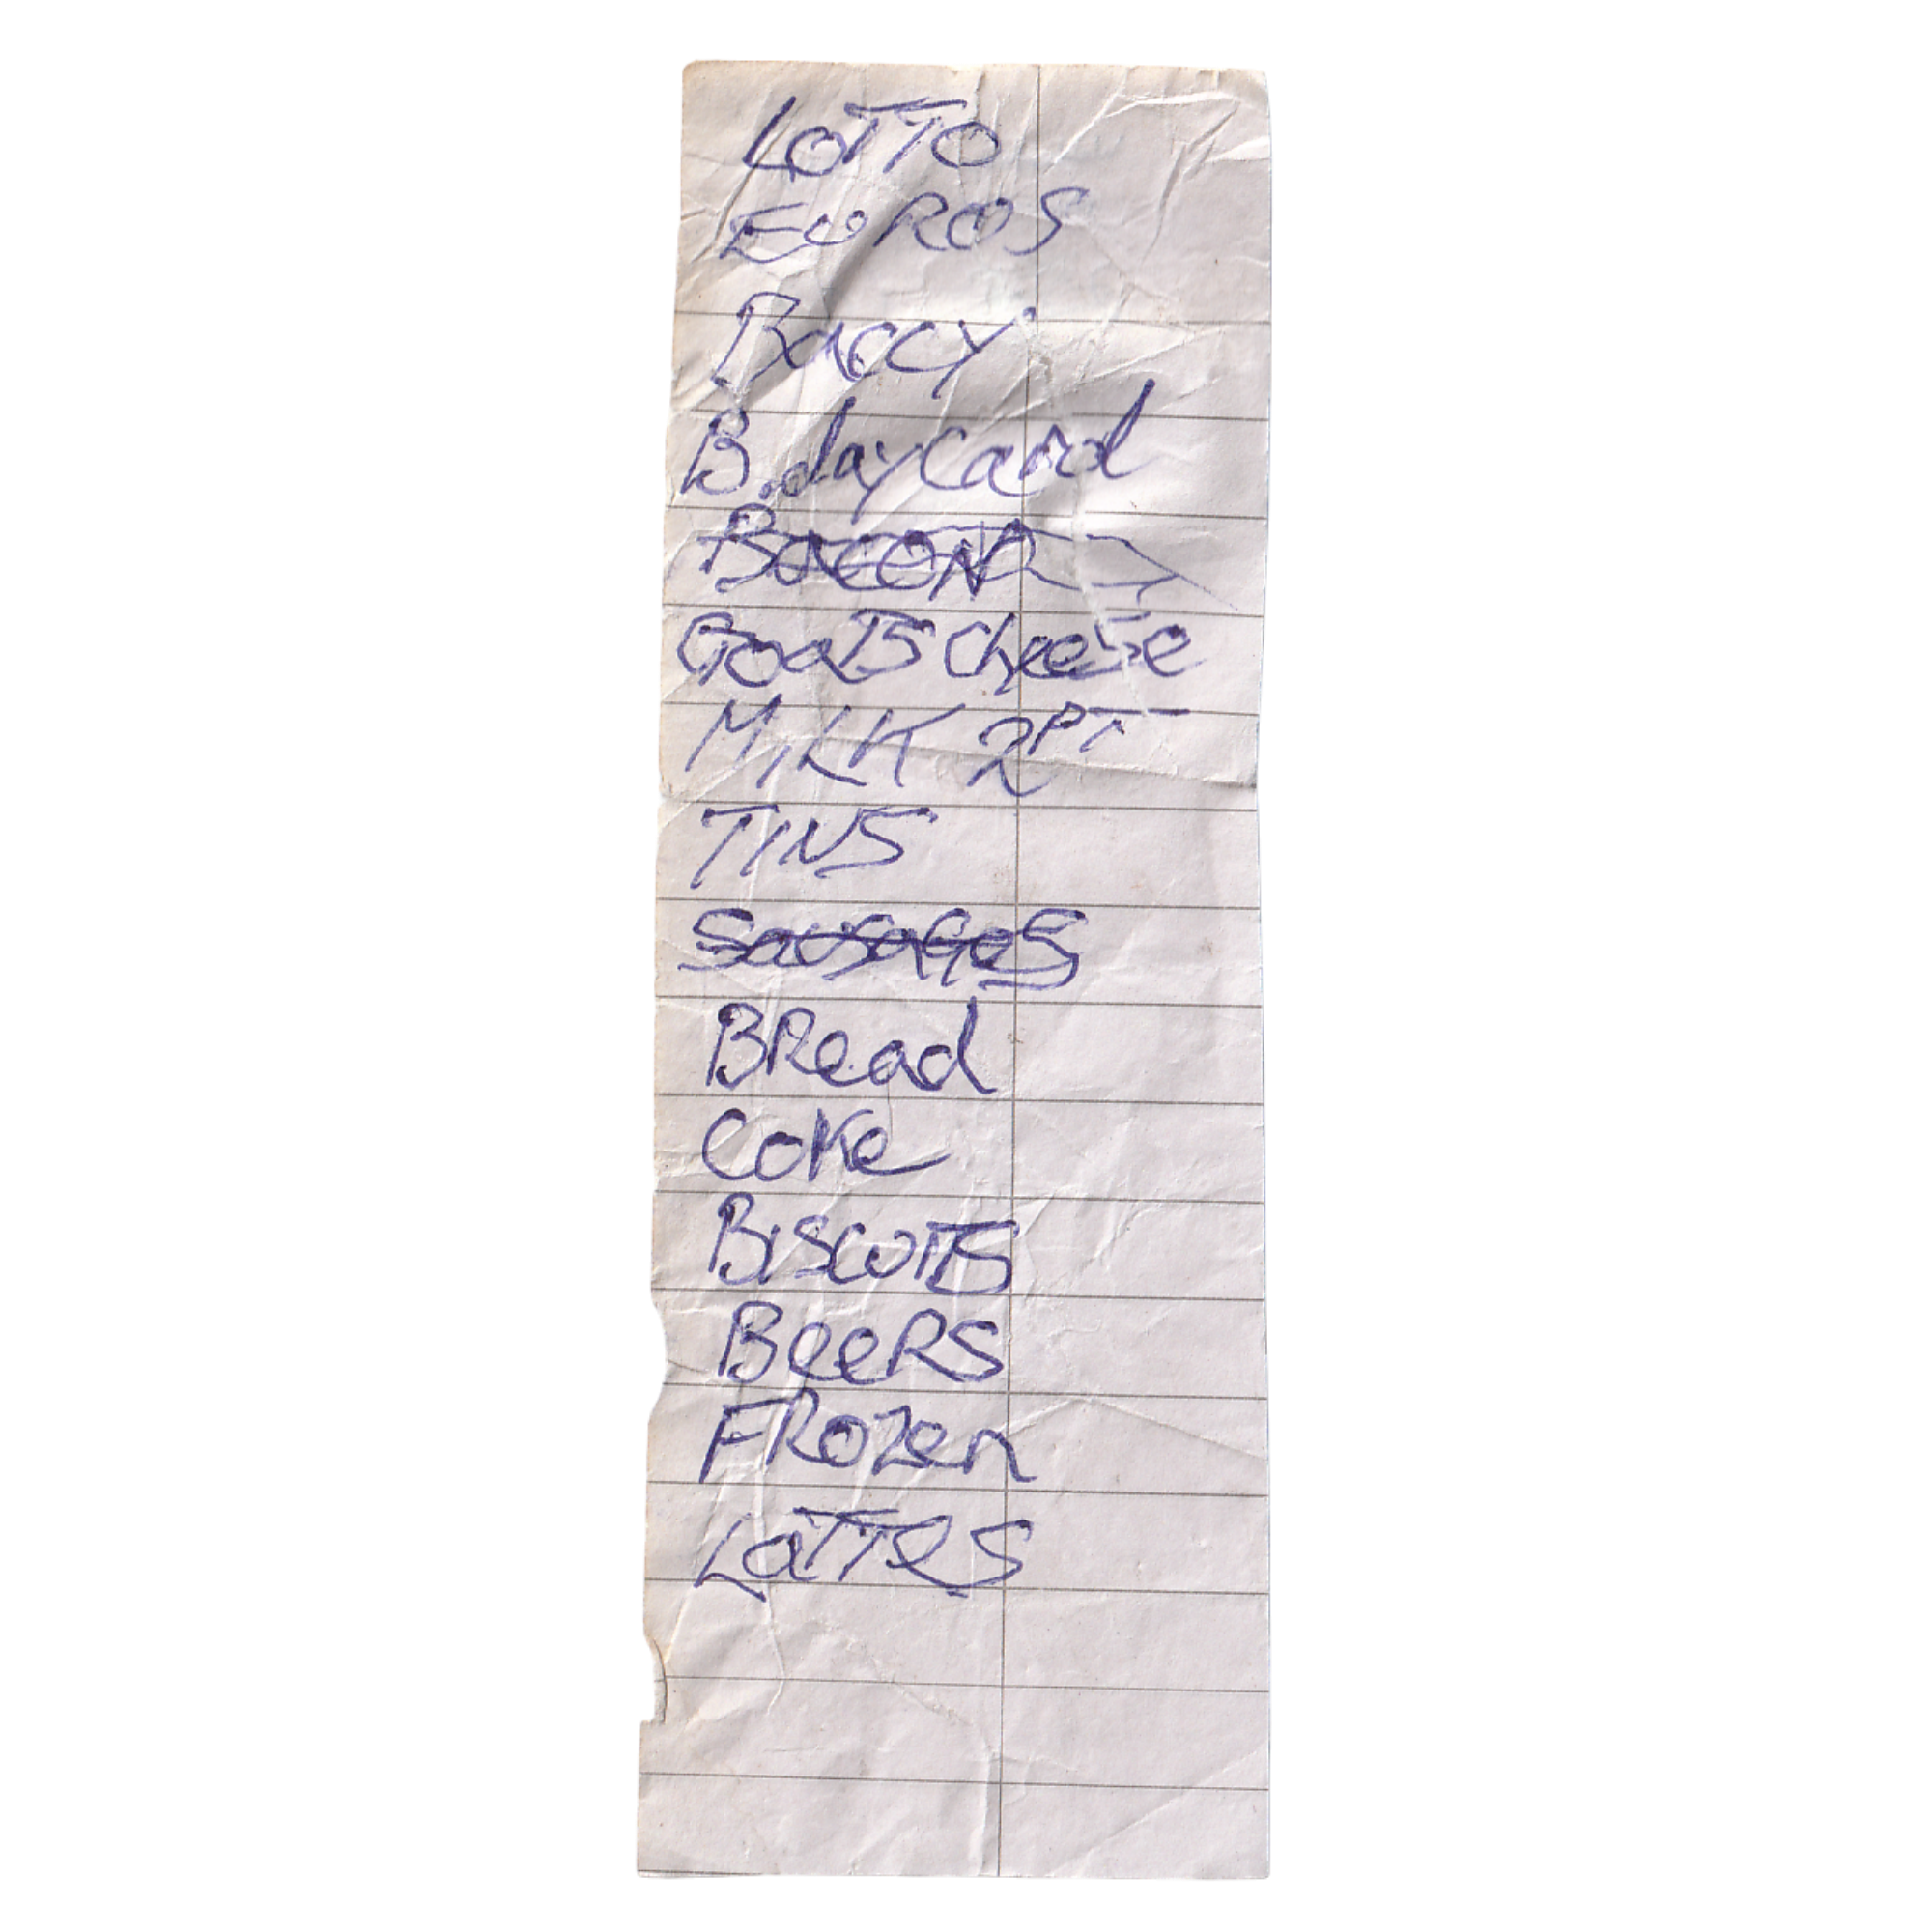 LOTTO
EUROS
Baccy
B.day Card
BaCON
GoaTS Cheese
MiLK 2PT
TINS
SauSaGeS
BRead
CoKe
BiSCuiTS
BeeRS
FROZen
LaTTeS